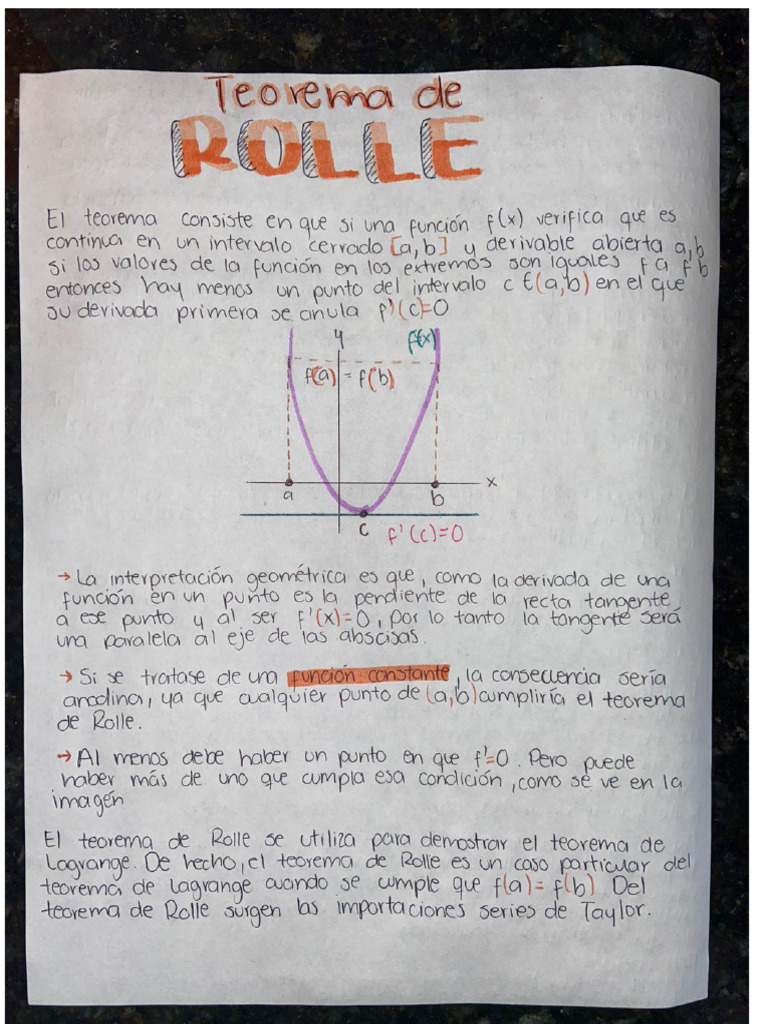 Teorema de
ROLLE
El teorema consiste en que si una función f(x) verifica que es
continua en un intervalo cerrado [a,b] y derivable abierta a,b
si los valores de la función en los extremos son iguales f a f b
entonces hay menos un punto del intervalo c ∈(a,b) en el que
su derivada primera se anula f'(c)=0
y
f(x)
f(a) = f(b)
x
a
b
c
f'(c)=0
→ La interpretación geométrica es que, como la derivada de una
función en un punto es la pendiente de la recta tangente
a ese punto y al ser f'(x)=0, por lo tanto la tangente será
una paralela al eje de las abscisas.
→ Si se tratase de una función constante, la consecuencia sería
anodina, ya que cualquier punto de (a,b) cumpliría el teorema
de Rolle.
→ Al menos debe haber un punto en que f'=0. Pero puede
haber más de uno que cumpla esa condición, como se ve en la
imagén
El teorema de Rolle se utiliza para demostrar el teorema de
Lagrange. De hecho, el teorema de Rolle es un caso particular del
teorema de Lagrange cuando se cumple que f(a)= f(b). Del
teorema de Rolle surgen las importaciones series de Taylor.